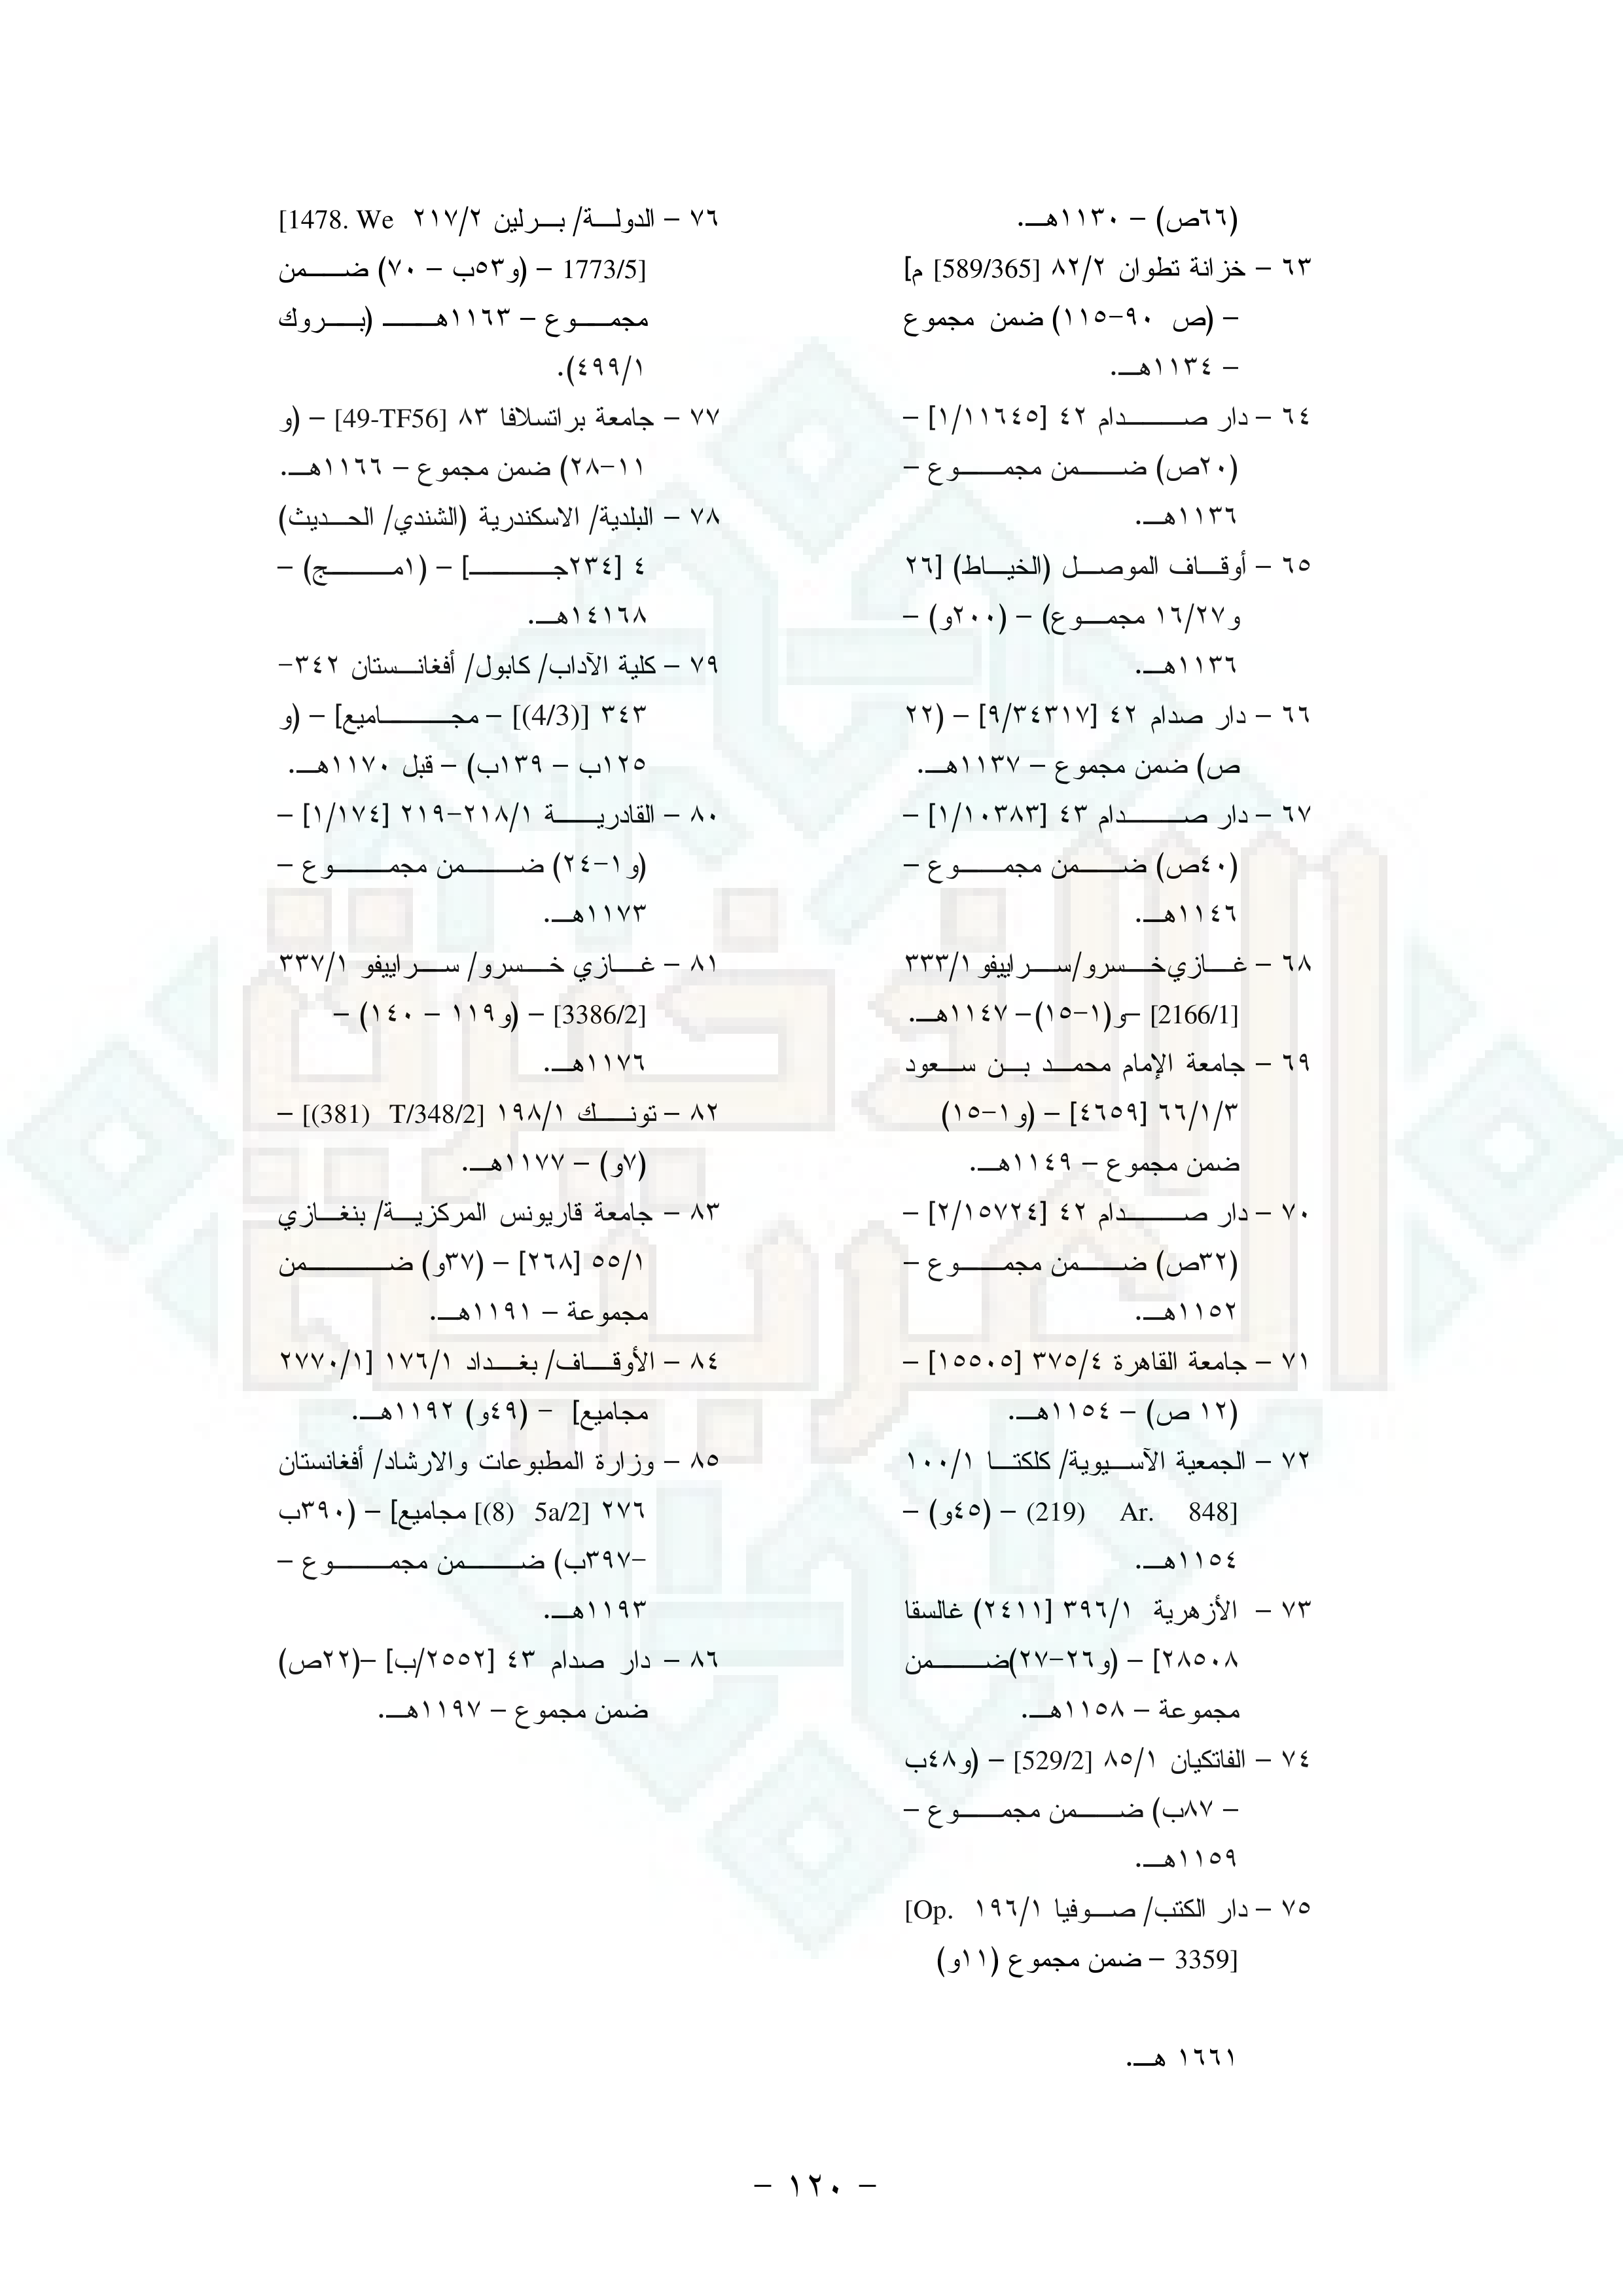 (٦٦ص) – ١١٣٠هـ.
٦٣ – خزانة تطوان ٨٢/٢ [589/365] م]
– (ص ٩٠-١١٥) ضمن مجموع
– ١١٣٤هـ.
٦٤ – دار صدام ٤٢ [١/١١٦٤٥] –
(٢٠ص) ضمن مجموع –
١١٣٦هـ.
٦٥ – أوقاف الموصل (الخياط) [٢٦
و١٦/٢٧ مجموع) – (٢٠٠و) –
١١٣٦هـ.
٦٦ – دار صدام ٤٢ [٩/٣٤٣١٧] – (٢٢
ص) ضمن مجموع – ١١٣٧هـ.
٦٧ – دار صدام ٤٣ [١/١٠٣٨٣] –
(٤٠ص) ضمن مجموع –
١١٤٦هـ.
٦٨ – غازي خسرو/سراييفو ٣٣٣/١
[2166/1] –و(١-١٥)– ١١٤٧هـ.
٦٩ – جامعة الإمام محمد بن سعود
٦٦/١/٣ [٤٦٥٩] – (و١-١٥)
ضمن مجموع – ١١٤٩هـ.
٧٠ – دار صدام ٤٢ [٢/١٥٧٢٤] –
(٣٢ص) ضمن مجموع –
١١٥٢هـ.
٧١ – جامعة القاهرة ٣٧٥/٤ [١٥٥٠٥] –
(١٢ ص) – ١١٥٤هـ.
٧٢ – الجمعية الآسيوية/ كلكتا ١٠٠/١
[848 Ar. (219) – (٤٥و) –
١١٥٤هـ.
٧٣ – الأزهرية ٣٩٦/١ [٢٤١١) غالسقا
٢٨٥٠٨] – (و٢٦-٢٧)ضمن
مجموعة – ١١٥٨هـ.
٧٤ – الفاتكيان ٨٥/١ [529/2] – (و٤٨ب
– ٨٧ب) ضمن مجموع –
١١٥٩هـ.
٧٥ – دار الكتب/ صوفيا ١٩٦/١ [Op.
3359] – ضمن مجموع (١١و)
١٦٦١ هـ.
٧٦ – الدولة/ برلين ٢١٧/٢ [1478. We
1773/5] – (و٥٣ب – ٧٠) ضمن
مجموع – ١١٦٣هـ (بروك
٤٩٩/١).
٧٧ – جامعة براتسلافا ٨٣ [49-TF56] – (و
١١-٢٨) ضمن مجموع – ١١٦٦هـ.
٧٨ – البلدية/ الاسكندرية (الشندي/ الحديث)
٤ [٢٣٤جـ] – (١مج) –
١٤١٦٨هـ.
٧٩ – كلية الآداب/ كابول/ أفغانستان ٣٤٢-
٣٤٣ [(4/3)] – مجاميع] – (و
١٢٥ب – ١٣٩ب) – قبل ١١٧٠هـ.
٨٠ – القادرية ٢١٨/١-٢١٩ [١/١٧٤] –
(و١-٢٤) ضمن مجموع –
١١٧٣هـ.
٨١ – غازي خسرو/ سراييفو ٣٣٧/١
[3386/2] – (و١١٩ – ١٤٠) –
١١٧٦هـ.
٨٢ – تونك ١٩٨/١ [T/348/2 (381)] –
(٧و) – ١١٧٧هـ.
٨٣ – جامعة قاريونس المركزية/ بنغازي
٥٥/١ [٢٦٨] – (٣٧و) ضمن
مجموعة – ١١٩١هـ.
٨٤ – الأوقاف/ بغداد ١٧٦/١ [٢٧٧٠/١
مجاميع] – (٤٩و) ١١٩٢هـ.
٨٥ – وزارة المطبوعات والارشاد/ أفغانستان
٢٧٦ [5a/2 (8)] مجاميع] – (٣٩٠ب
-٣٩٧ب) ضمن مجموع –
١١٩٣هـ.
٨٦ – دار صدام ٤٣ [٢٥٥٢/ب] –(٢٢ص)
ضمن مجموع – ١١٩٧هـ.
– ١٢٠ –
الذخيرة
العربية